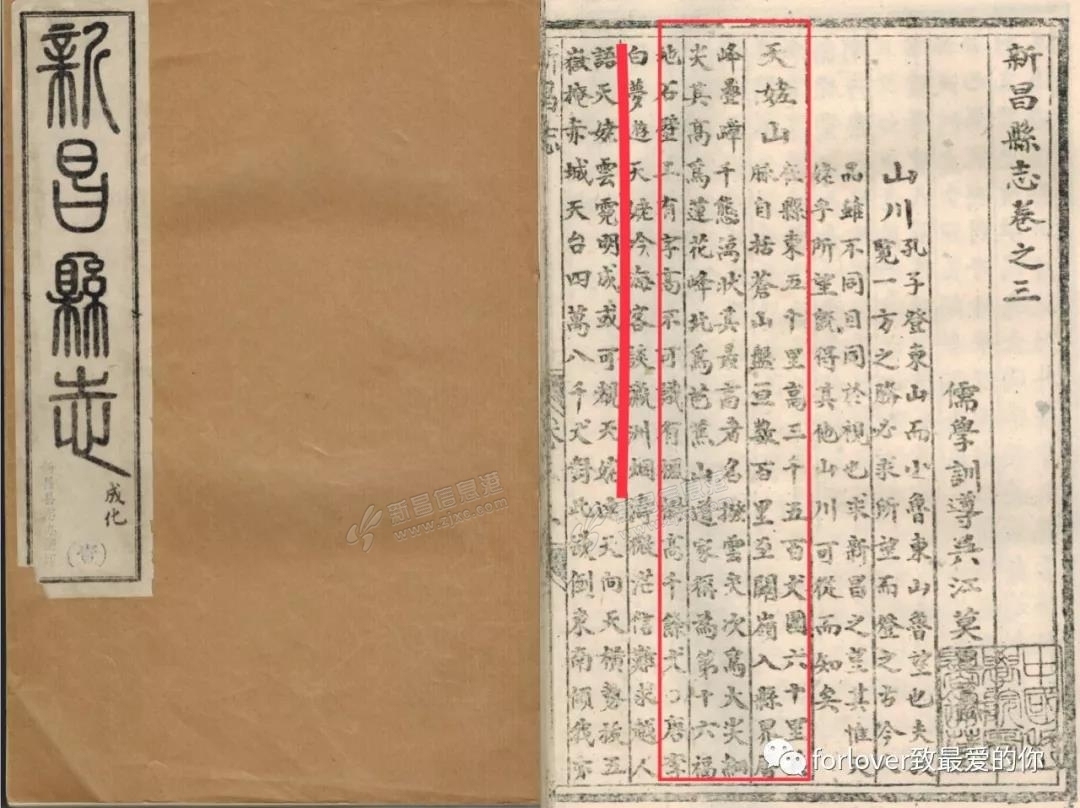 新昌縣志
成化
(壹)
新昌縣志卷之三
儒學訓導吳江莫
山川
孔子登東山而小魯東山魯望也夫
覽一方之勝必求所望而登之古今
品雖不同目同於視也求新昌之望其惟
姥乎所望既得其他山川可從而知矣
天姥山
在縣東五十里高三千五百丈圍六十里
脉自括蒼山盤亘數百里至關嶺入縣界層
峰疊嶂千態萬狀其最高者名撥雲尖次爲大尖細
尖其高爲蓮花峰北爲芭蕉山道家稱爲第十六福
地石壁上有字高不可識有楓高千餘丈○唐李
白夢遊天姥今海客談瀛洲烟濤微茫信難求越人
語天姥雲霓明滅或可覩天姥連天向天橫勢拔五
嶽掩赤城天台四萬八千丈對此欲倒東南傾我亦
新昌信息港
www.zjxc.com
forlover致最爱的你